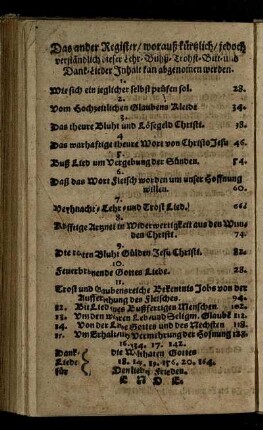 Das ander Register / worauß kürtzlich / jedoch
verständlich dieser Lehr- Buhß- Trohst- Bitt- und
Dank-Lieder Inhalt kan abgenomen werden.
1.
Wie sich ein jeglicher selbst prüfen sol. 28.
2.
Vom Hochzeitlichen Glaubens Kleide 34.
3.
Das theure Bluht und Lösegeld Christi. 38.
4.
Das warhaftige theure Wort von Christo Jesu 46.
5.
Buß Lied um Vergebung der Sünden. 54.
6.
Daß das Wort Fleisch worden um unser Hoffnung
willen. 60.
7.
Weyhnacht- Lehr- und Trost Lied. 66.
8.
Kräfftige Artznei in Widerwertigkeit aus den Wun-
den Christi. 74.
9.
Die rothen Bluht Gülden Jesu Christi. 82.
10.
Feuerbrennende Gottes Liebe. 28.
11.
Trost und Glaubensreiche Bekentnis Jobs von der
Aufferstehung des Fleisches. 94.
12. Bit Lied eines Bußfertigen Menschen. 102.
13. Um den waren Leb- und Seligm. Glaubē 111.
14. Von der Liebe Gottes und des Nechsten 118.
15. Um Erhaltung Vermehrung der Hoffnung 128.
16. 134. 17. 142.
Dank- die Wolthaten Gottes
Lieder 18. 14. 19. 156. 20. 164.
för Den lieben Frieden.
E N D E.